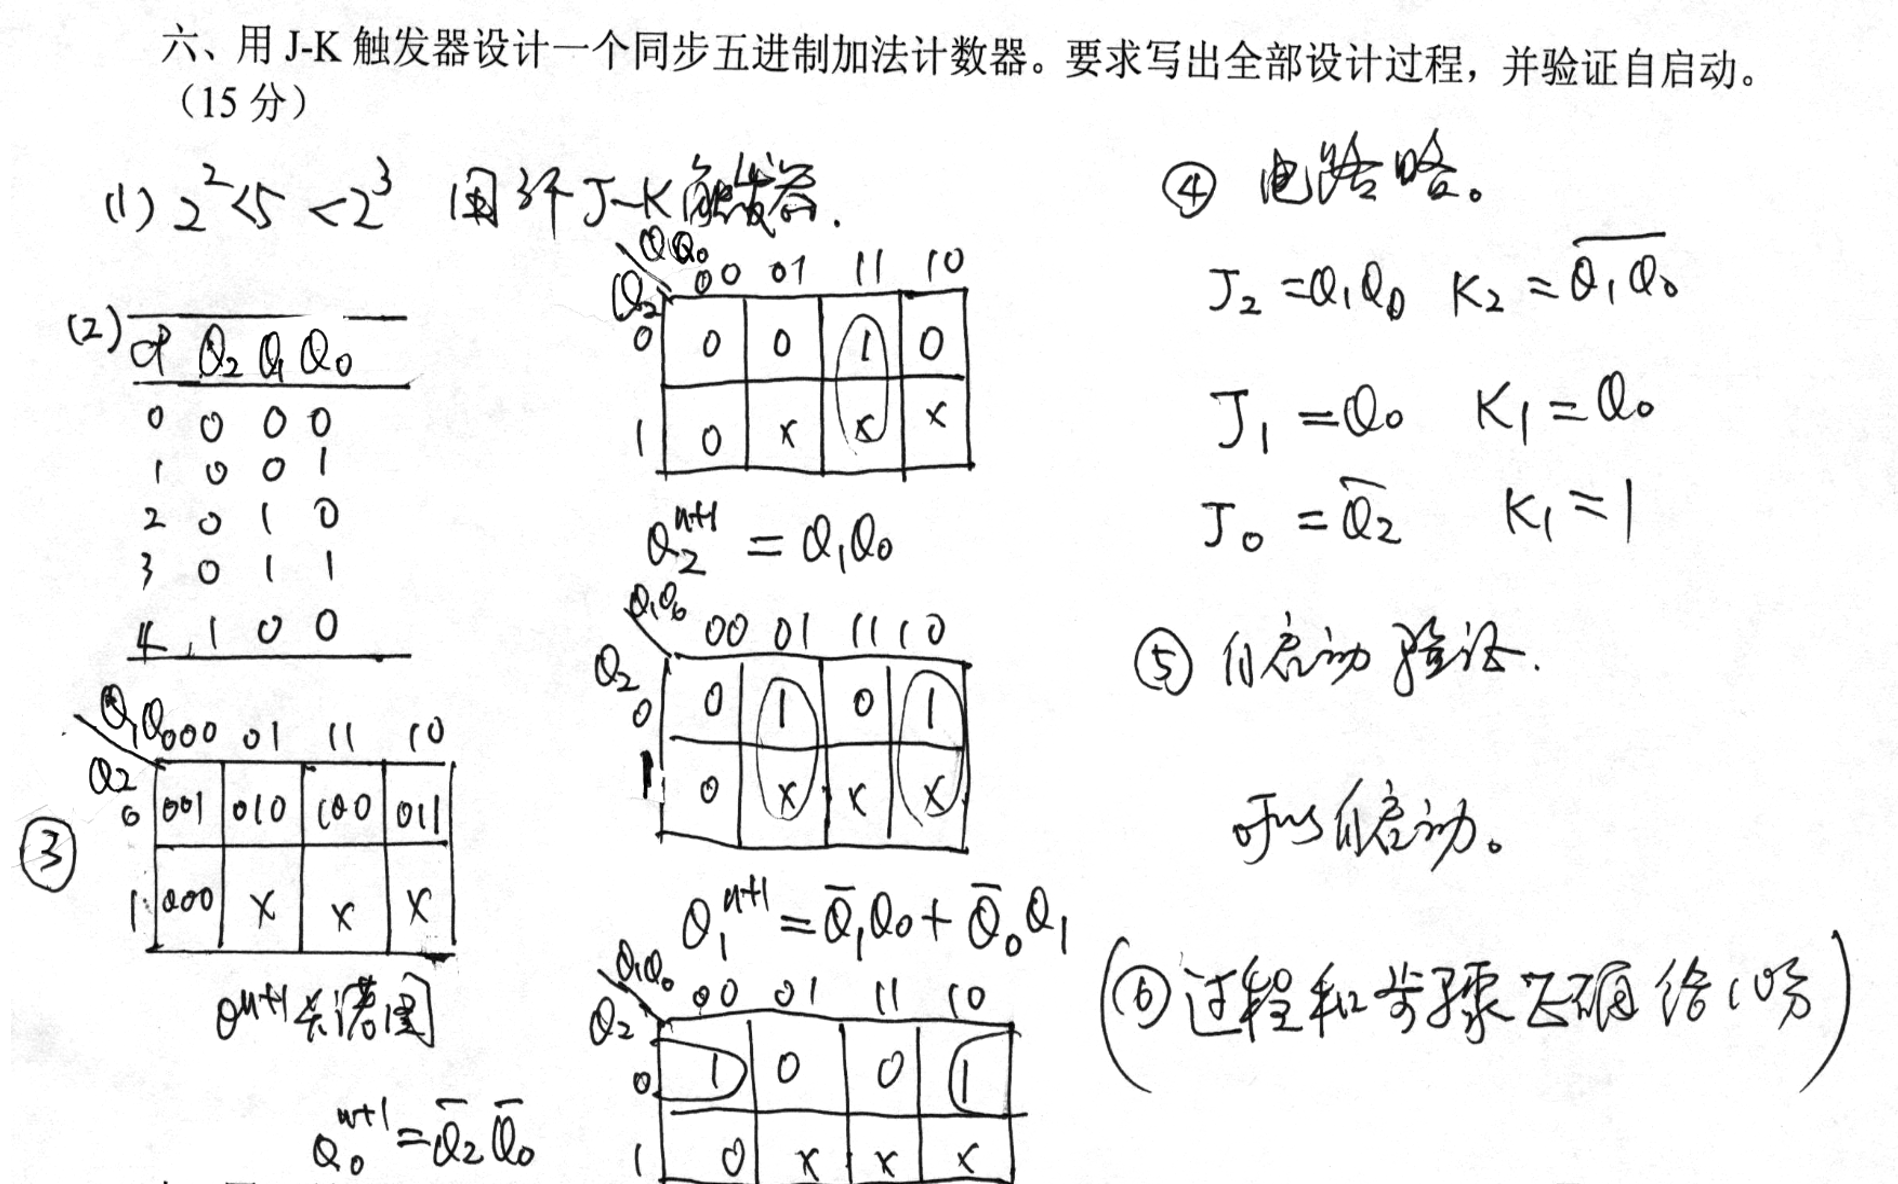 六、用 J-K 触发器设计一个同步五进制加法计数器。要求写出全部设计过程，并验证自启动。
（15 分）
(1) 2²<5<2³ 用3个J-K触发器.
(2)
CP Q₂ Q₁ Q₀
0 0 0 0
1 0 0 1
2 0 1 0
3 0 1 1
4 1 0 0
③
Q₁Q₀ 00 01 11 10
Q₂
0 001 010 100 011
1 000 x x x
Qⁿ⁺¹卡诺图
Q₀ⁿ⁺¹ = Q̅₂Q̅₀
Q₁Q₀ 00 01 11 10
Q₂
0 0 0 1 0
1 0 x x x
Q₂ⁿ⁺¹ = Q₁Q₀
Q₁Q₀ 00 01 11 10
Q₂
0 0 1 0 1
1 0 x x x
Q₁ⁿ⁺¹ = Q̅₁Q₀ + Q̅₀Q₁
Q₁Q₀ 00 01 11 10
Q₂
0 1 0 0 1
1 0 x x x
④ 电路略。
J₂ = Q₁Q₀ K₂ = \overline{Q₁Q₀}
J₁ = Q₀ K₁ = Q₀
J₀ = Q̅₂ K₁ = 1
⑤ 自启动验证.
可以自启动。
(⑥过程和步骤正确给10分)